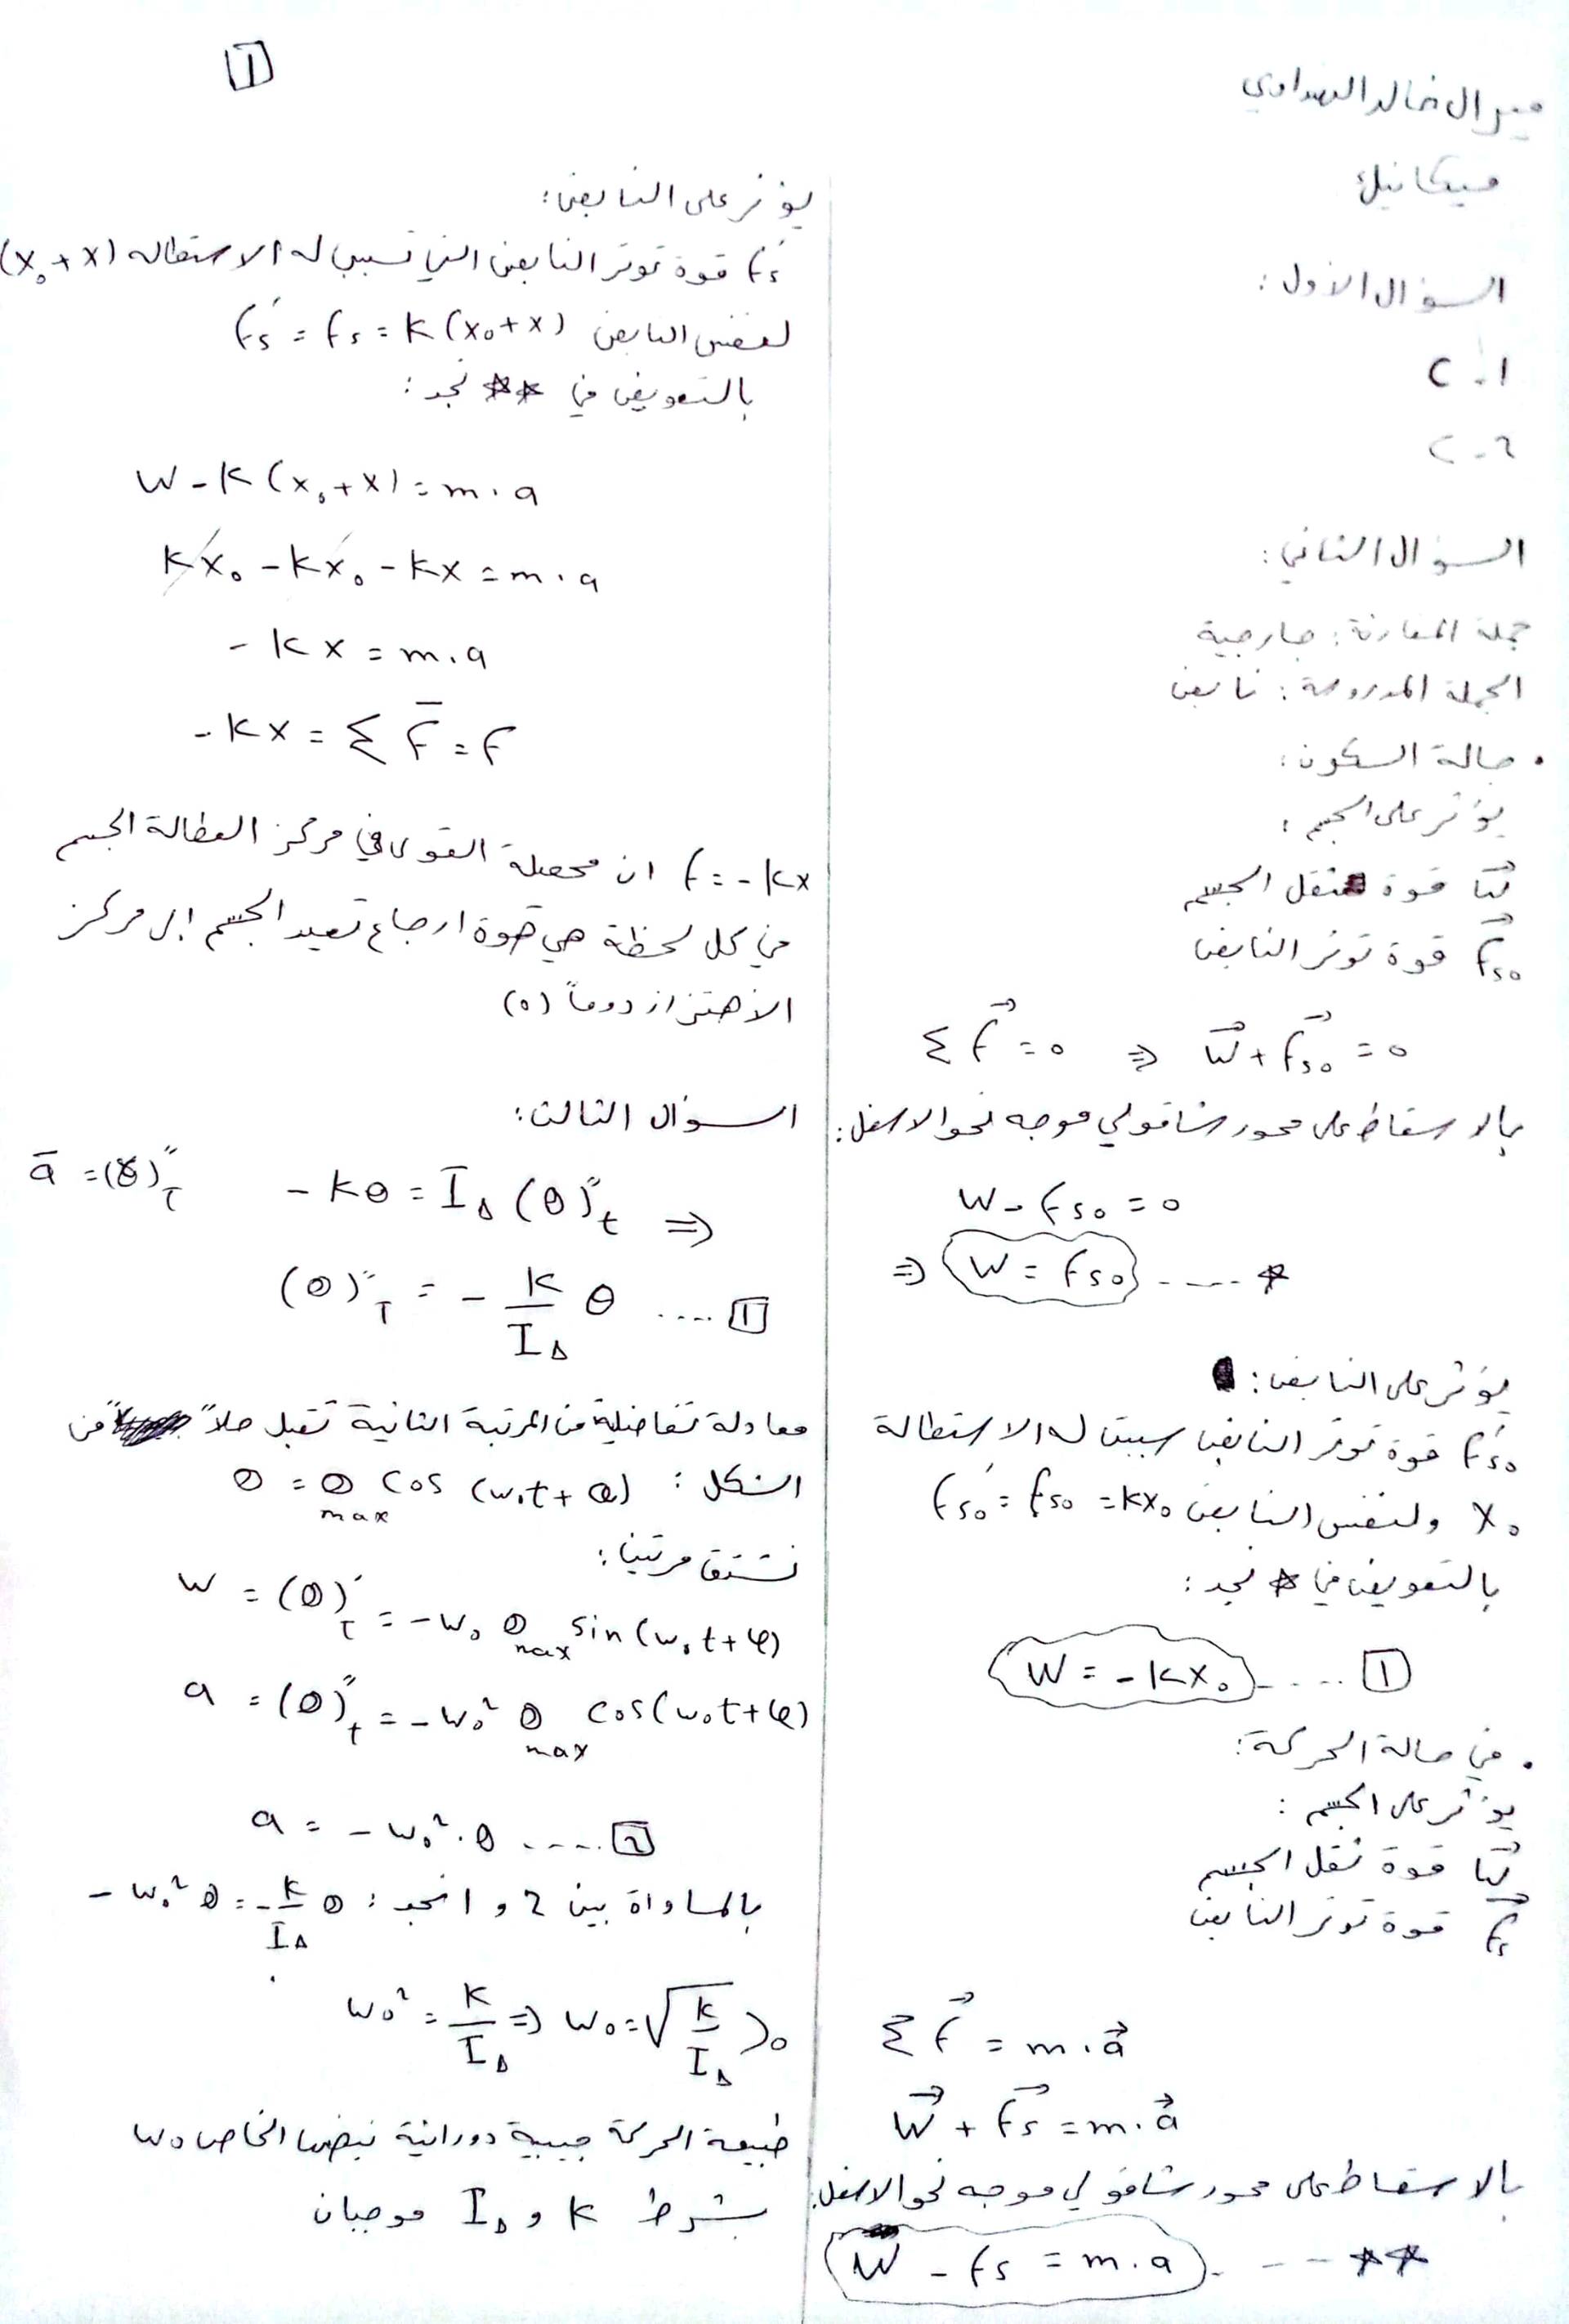 ميرال خالد الهنداوي
ميكانيك
السؤال الأول:
١- C
٢- C
السؤال الثاني:
جملة المقارنة: خارجية
الجملة المدروسة: نابض
• حالة السكون:
يؤثر على الجسم:
W⃗ قوة ثقل الجسم
F⃗s₀ قوة توتر النابض
Σ F⃗ = 0 ⇒ W⃗ + F⃗s₀ = 0
بالاسقاط على محور شاقولي موجه نحو الاسفل:
W - Fs₀ = 0
⇒ W = Fs₀ ---- *
يؤثر على النابض:
F's₀ قوة توتر النابض سببت له الاستطالة
x₀ ولنفس النابض F's₀ = Fs₀ = kx₀
بالتعويض في * نجد:
W = -kx₀ ---- [1]
• في حالة الحركة:
يؤثر على الجسم:
W⃗ قوة ثقل الجسم
F⃗s قوة توتر النابض
Σ F⃗ = m.a⃗
W⃗ + F⃗s = m.a⃗
بالاسقاط على محور شاقولي موجه نحو الاسفل:
W - Fs = m.a ---- **
[1]
يؤثر على النابض:
F's قوة توتر النابض التي تسبب له الاستطاله (x₀+x)
لنفس النابض F's = Fs = k(x₀+x)
بالتعويض في ** نجد:
W - k(x₀+x) = m.a
kx₀ - kx₀ - kx = m.a
- kx = m.a
- kx = Σ F̄ = F
F = -kx ان محصلة القوى في مركز العطالة الجسم
في كل لحظة هي قوة ارجاع تعيد الجسم إلى مركز
الاهتزاز دوماً (o)
السؤال الثالث:
- kθ = Ī∆ (θ)″t ⇒ ā = (θ)″t
(θ)″t = - k/I∆ θ .... [1]
معادلة تفاضلية من المرتبة الثانية تقبل حلاً من
الشكل: θ = θmax cos (ω₀t + φ)
نشتق مرتين:
ω = (θ)′t = -ω₀ θmax sin(ω₀t+φ)
a = (θ)″t = -ω₀² θmax cos(ω₀t+φ)
a = -ω₀².θ ---- [2]
بالمساواة بين 2 و 1 نجد: -ω₀² θ = -k/I∆ θ
ω₀² = k/I∆ ⇒ ω₀ = √(k/I∆) > 0
طبيعة الحركة جيبية دورانية نبضها الخاص ω₀
بشرط k و I∆ موجبان